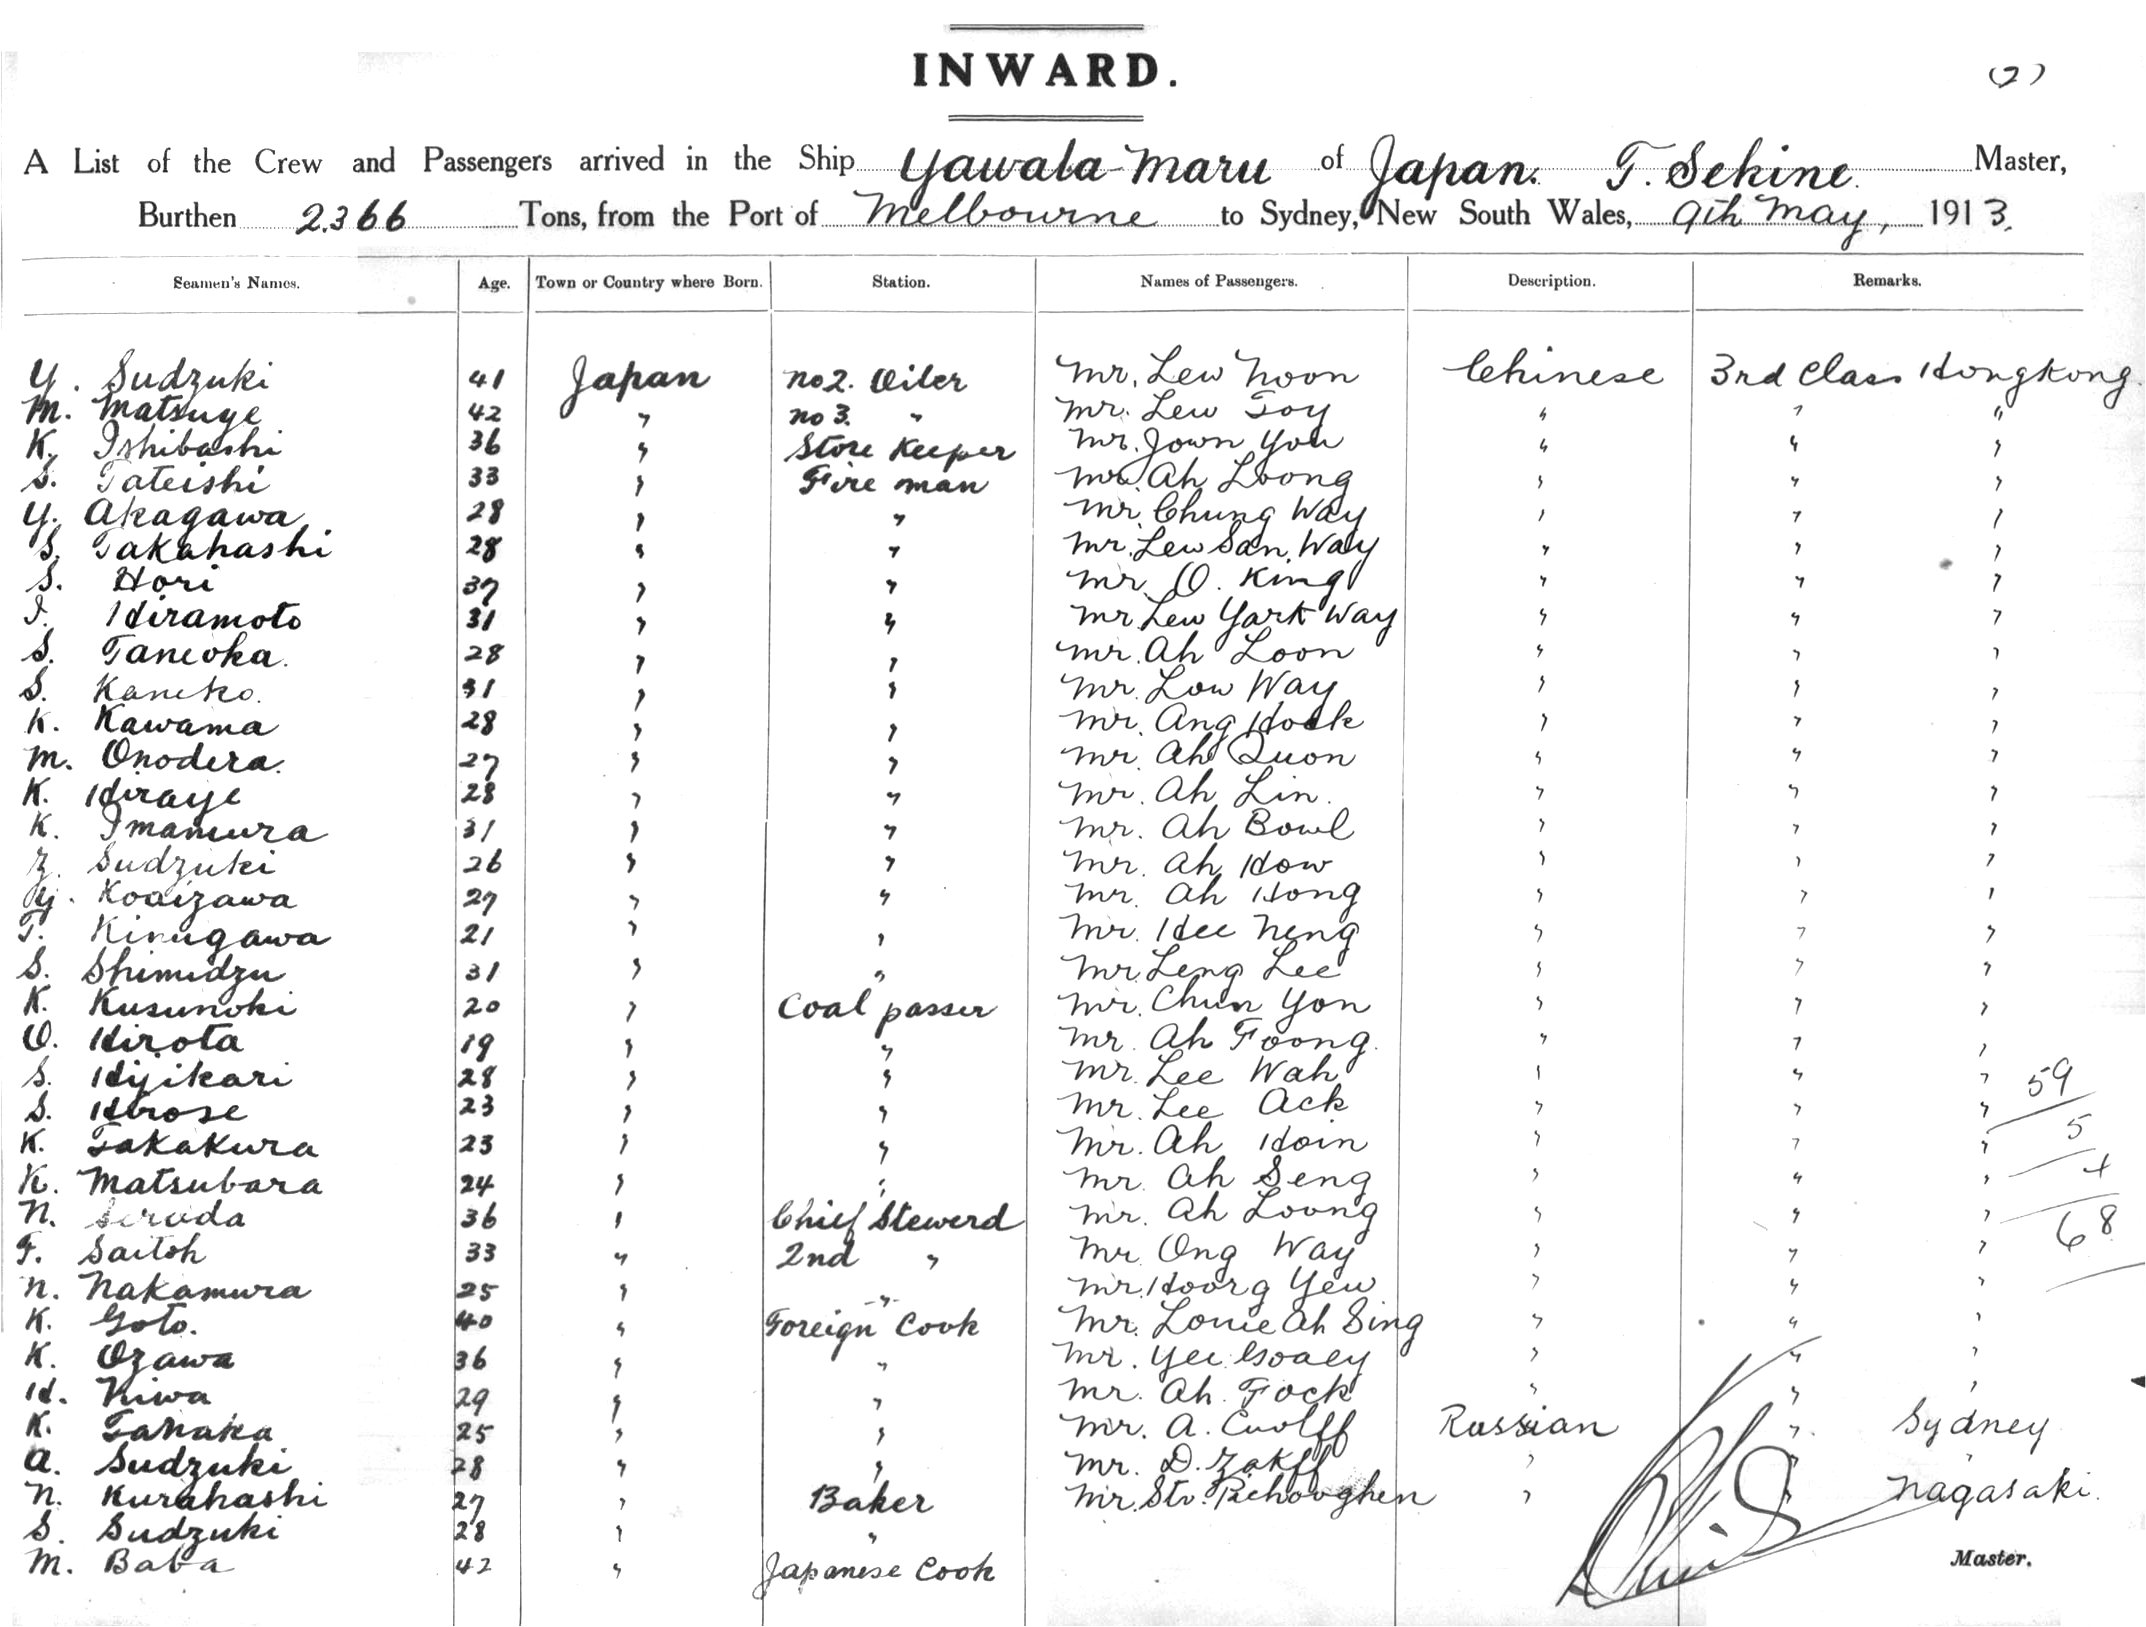 INWARD.
(2)
A List of the Crew and Passengers arrived in the Ship Yawata Maru of Japan. T. Sekine. Master,
Burthen 2366 Tons, from the Port of Melbourne to Sydney, New South Wales, 9th May, 1913.
Seamen's Names. Age. Town or Country where Born. Station. Names of Passengers. Description. Remarks.
Y. Sudzuki 41 Japan No 2. Oiler Mr. Lew Noon Chinese 3rd Class Hongkong
M. Matsuye 42 " No 3. " Mr. Lew Toy " " "
K. Ishibashi 36 " Store Keeper Mr. Jown You " " "
S. Tateishi 33 " Fire man Mr. Ah Loong " " "
Y. Akagawa 28 " " Mr. Chung Way " " "
S. Takahashi 28 " " Mr. Lew San Way " " "
S. Hori 37 " " Mr. O. King " " "
I. Hiramoto 31 " " Mr Lew York Way " " "
S. Taneoka. 28 " " Mr. Ah Loon " " "
S. Kaneko. 31 " " Mr. Low Way " " "
K. Kawama 28 " " Mr. Ang Hock " " "
M. Onodera. 27 " " Mr. Ah Quon " " "
K. Hiraye 28 " " Mr. Ah Lin. " " "
K. Imamura 31 " " Mr. Ah Bowl " " "
Z. Sudzuki 26 " " Mr. Ah How " " "
Y. Koaizawa 27 " " Mr. Ah Hong " " "
T. Kinugawa 21 " " Mr. Hee Neng " " "
S. Shimidzu 31 " " Mr. Leng Lee " " "
K. Kusunoki 20 " Coal passer Mr. Chun Yon " " "
O. Hirota 19 " " Mr. Ah Foong. " " "
S. Hijikari 28 " " Mr. Lee Wah " " " 59
S. Hirose 23 " " Mr. Lee Ack " " "
K. Takakura 23 " " Mr. Ah Hoin " " " 5
K. Matsubara 24 " " Mr. Ah Seng " " " 4
N. 36 " Chief Stewerd Mr. Ah Loong " " " 68
F. Saitoh 33 " 2nd " Mr Ong Way " " "
N. Nakamura 25 " " Mr. Hoorg Yew " " "
K. Goto. 40 " Foreign Cook Mr. Louie Ah Sing " " "
K. Ozawa 36 " " Mr. Yee Goaey " " "
H. Niwa 29 " " Mr. Ah Fock " " "
K. Tanaka 25 " " Mr. A. Russian " Sydney
A. Sudzuki 28 " " Mr. D. Zakff " " "
N. Kurahashi 27 " Baker Mr. " " Nagasaki.
S. Sudzuki 28 " "
M. Baba 42 " Japanese Cook
Master.